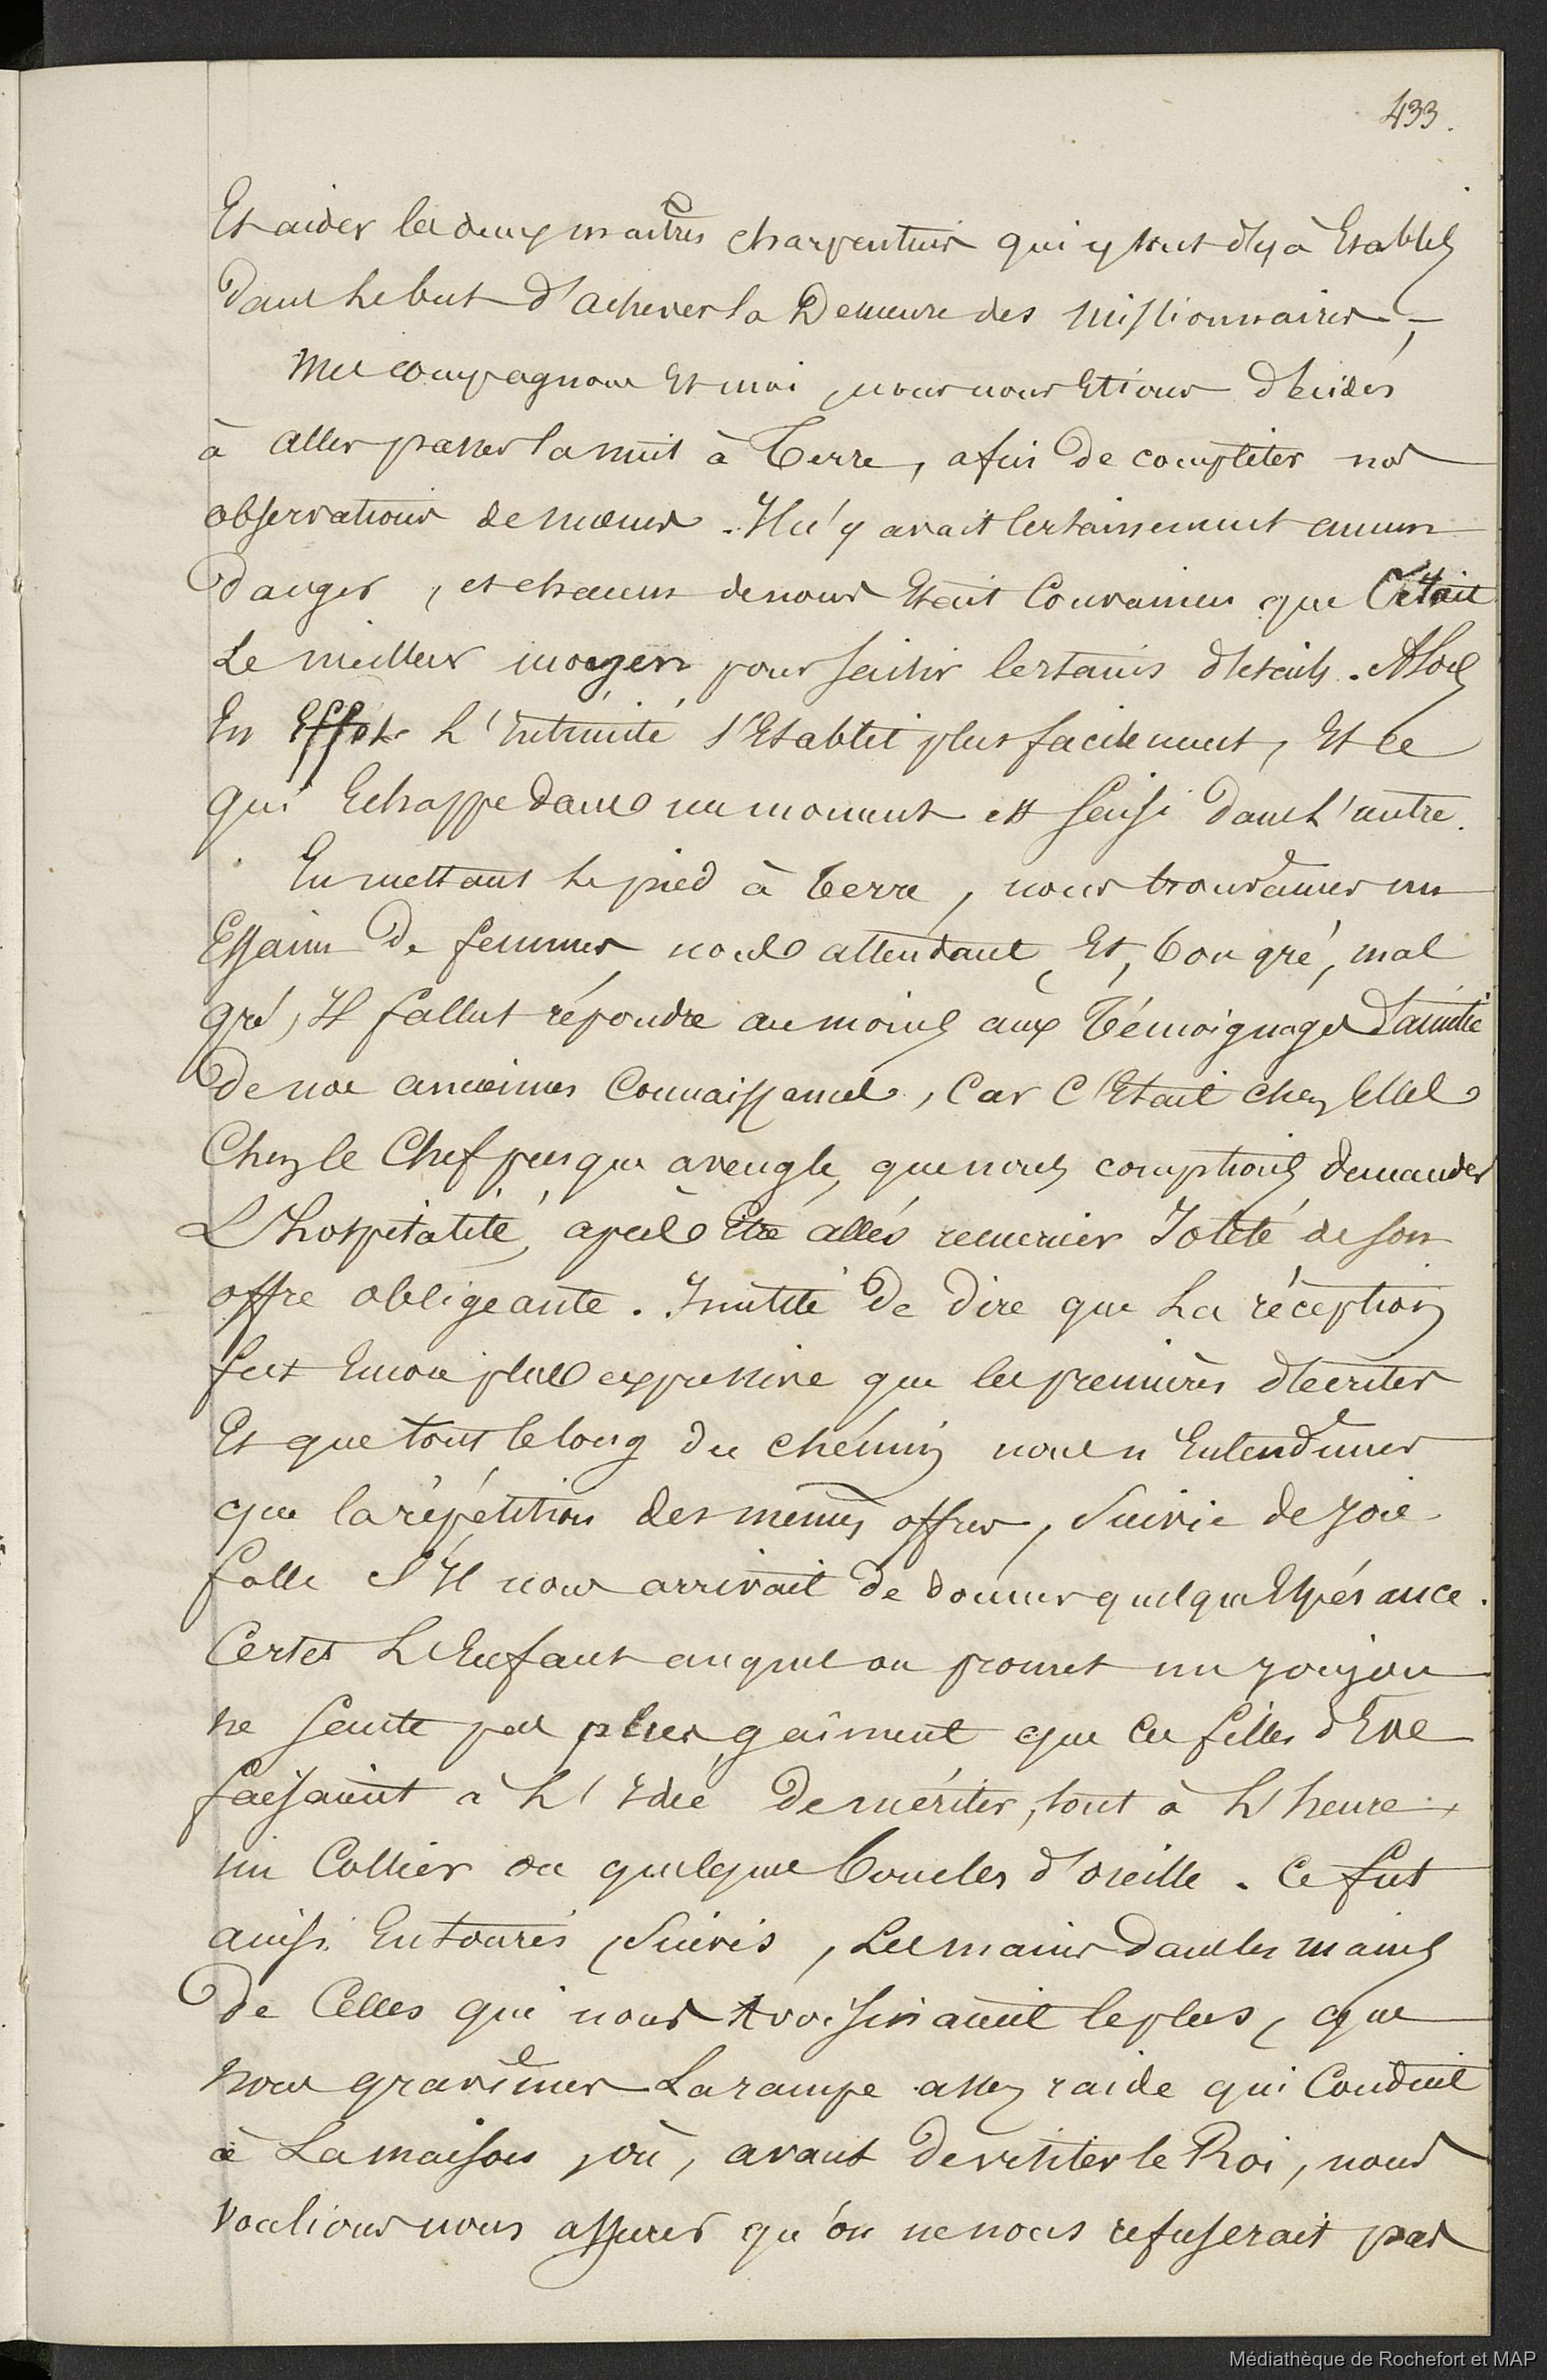 433.
Et aider les deux maîtres charpentiers qui y sont déjà Etablis
Dans le but d'achever la Demeure des Missionnaires ;
Mes compagnons Et moi, nous nous Etions décidés
à aller passer la nuit à Terre, afin de compléter nos
observations de moeurs. Il n'y avait Certainement aucun
Danger, et chacun de nous Etait Convaincu que C'était
Le meilleur moyen pour saisir Certains détails. Alors
En Effet L'Intimité s'Etablit plus facilement, Et ce
qui Echappe dans un moment est saisi dans l'autre.
En mettant le pied à Terre, nous trouvâmes un
Essaim De femmes nous attendant, Et, bon gré, mal
gré, Il fallut répondre au moins aux Témoignages d'amitié
De nos anciennes Connaissances, Car C'Etait chez Elles
Chez le Chef presque aveugle, que nous comptions demander
L'hospitalité, après être allés remercier Iotété de son
offre obligeante. Inutile De dire que La réception
fut Encore plus expressive que les premières décrites
Et que tout le long du chemin nous n'Entendîmes
que la répétition des mêmes offres, Suivie de joie
folle S'Il nous arrivait De donner quelque Espérance.
Certes L'Enfant auquel on promet un joujou
ne saute pas plus gaîment que ces filles d'Eve
faisaient à L'Idée De mériter, tout à L'heure,
un Collier ou quelques boucles d'oreille. Ce fut
ainsi Entourés, Suivis, Les mains dans les mains
De Celles qui nous Avoisinaient le plus, que
nous gravîmes La rampe assez raide qui Conduit
à La maison, où, avant De visiter le Roi, nous
Voulions nous assurer qu'on ne nous refuserait pas
Médiathèque de Rochefort et MAP